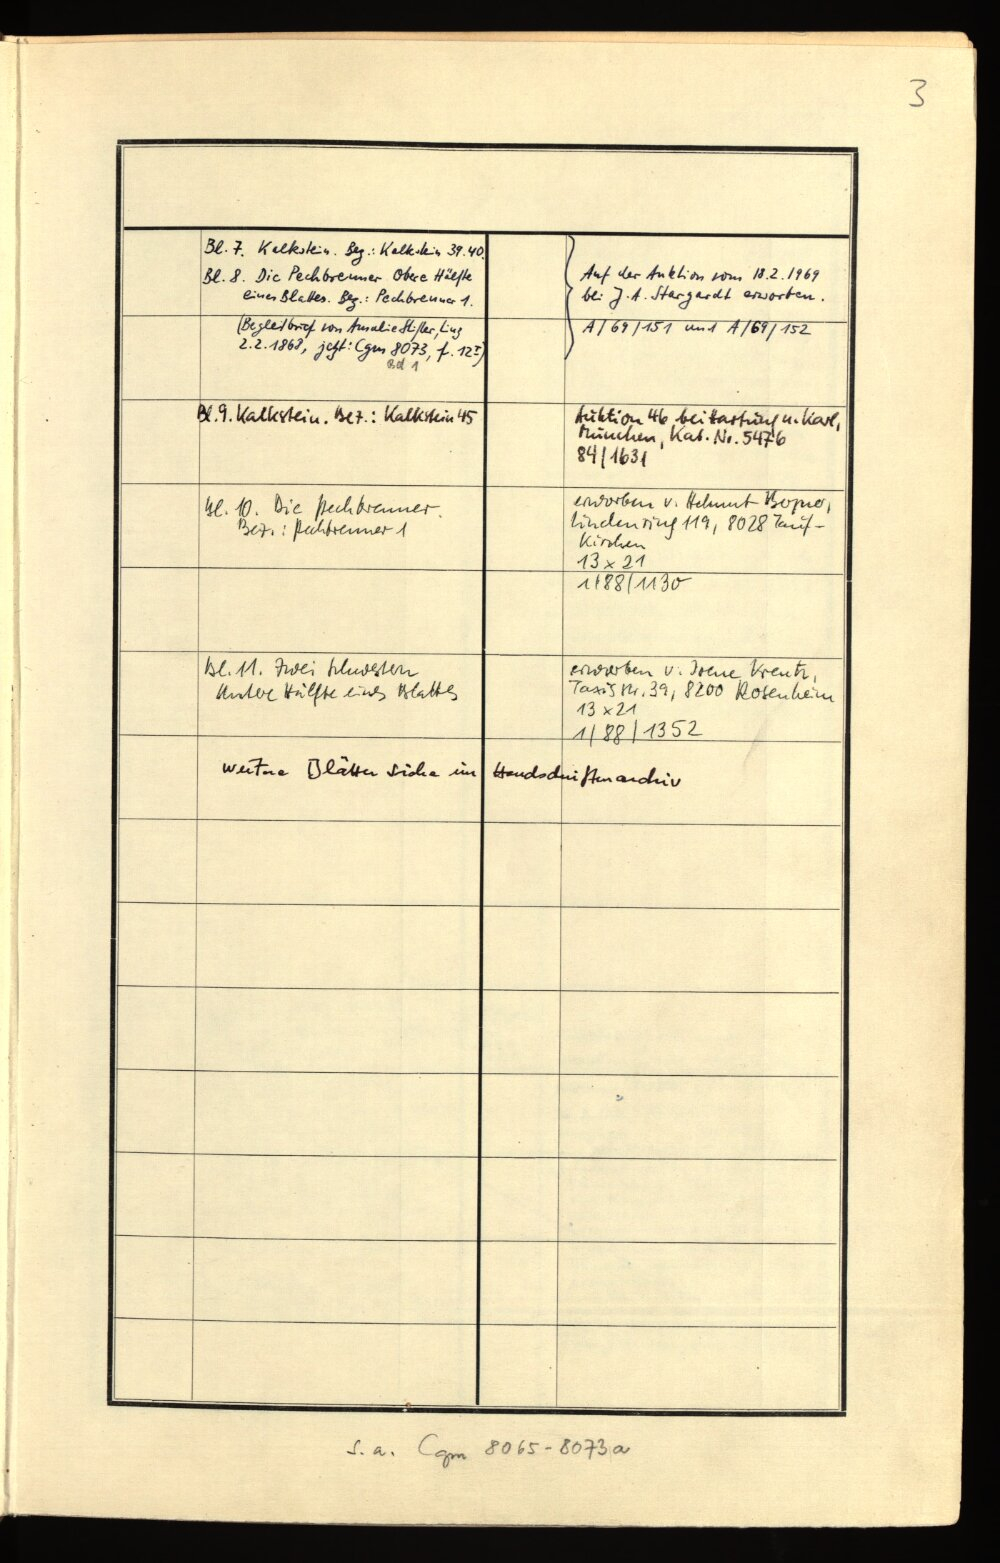 3
Bl. 7. Kalkstein. Bez.: Kalkstein 39.40.
Bl. 8. Die Pechbrenner Obere Hälfte
eines Blattes. Bez.: Pechbrenner 1.
(Begleitbrief von Amalie Stifter, Linz
2.2.1868, jetzt: Cgm 8073, f. 12r)
Bd 1
Auf der Auktion vom 18.2.1969
bei J. A. Stargardt erworben.
A/69/151 und A/69/152
Bl. 9. Kalkstein. Bez.: Kalkstein 45
Auktion 46 bei Hartung u. Karl,
München, Kat. Nr. 5476
84/1631
Bl. 10. Die Pechbrenner.
Bez.: Pechbrenner 1
erworben v. Helmut
Lindenring 119, 8028 Tauf-
kirchen
13 x 21
1/88/1130
Bl. 11. Zwei Schwestern
Untere Hälfte eines Blattes
erworben v. Irene
Taxisstr. 39, 8200 Rosenheim
13 x 21
1/88/1352
weitere Blätter siehe im Handschriftenarchiv
s. a. Cgm 8065-8073a